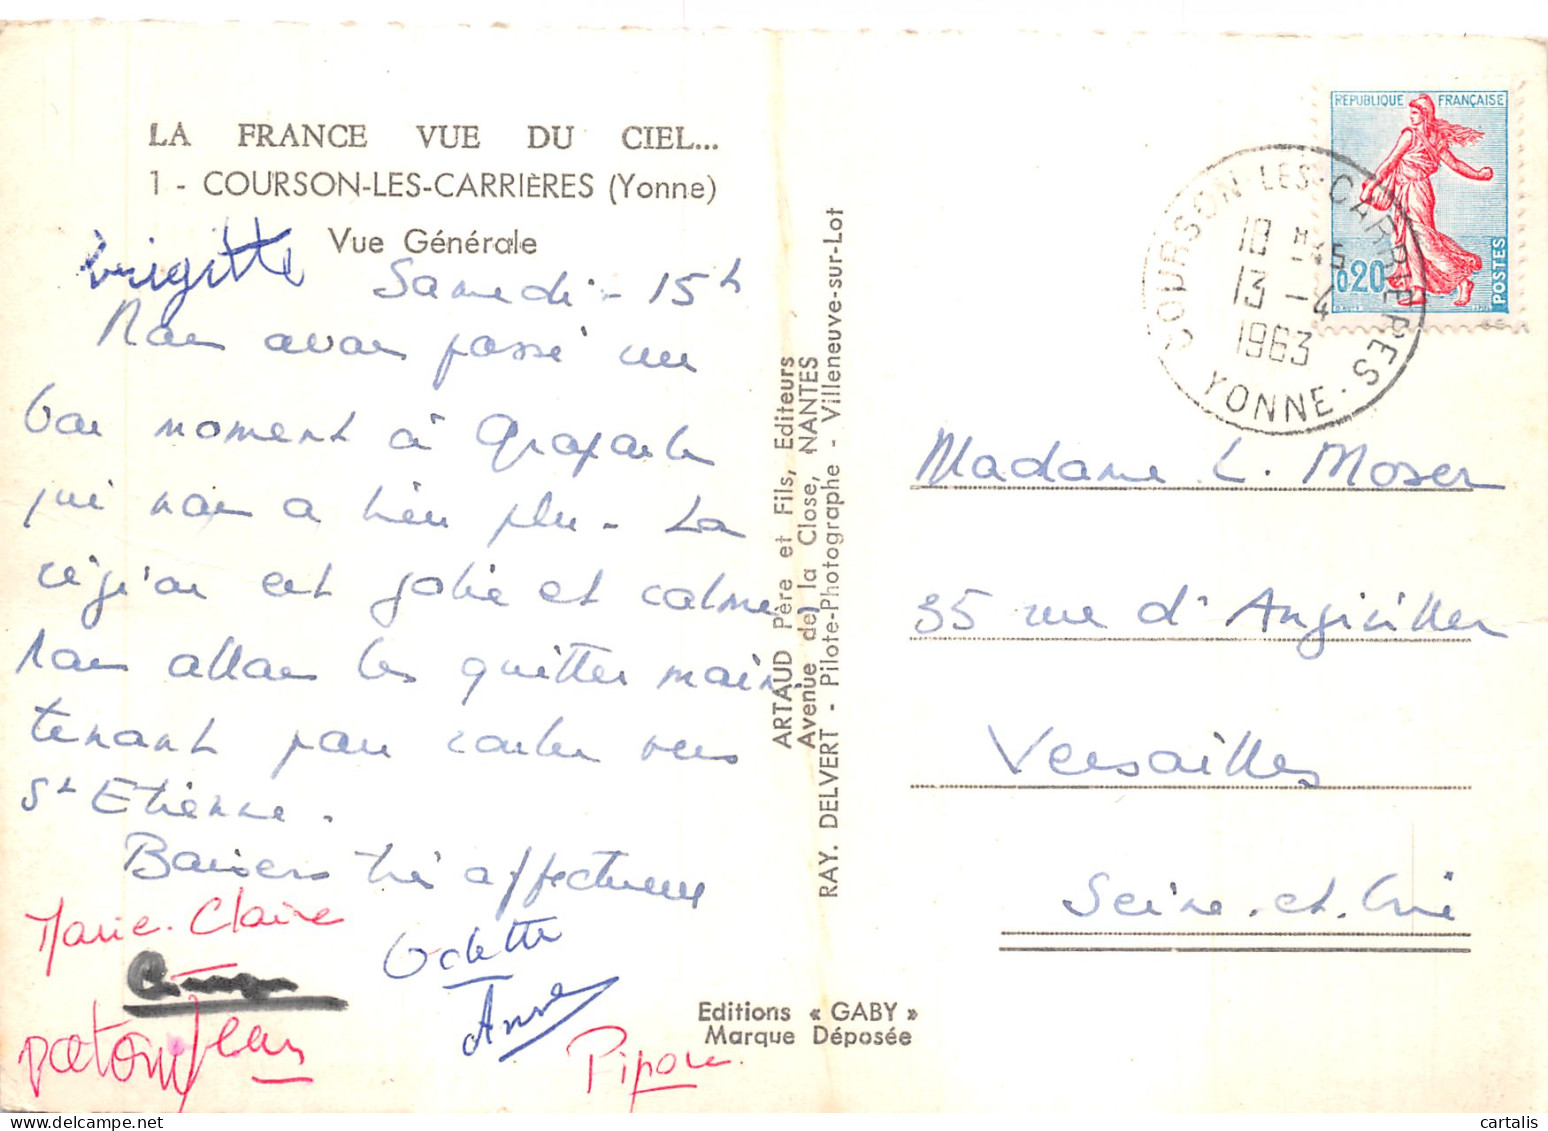 LA FRANCE VUE DU CIEL...
1 - COURSON-LES-CARRIÈRES (Yonne)
Vue Générale
brigitte
Samedi - 15h
Nous avons passé un
bon moment à
qui nous a bien plu - La
région est jolie et calme
Nous allons les quitter main
tenant pour rouler vers
St Etienne.
Baisers très affectueux
Marie-Claire
Odette
Anne
Jean
Pipore
ARTAUD Père et Fils, Editeurs
Avenue de la Close, NANTES
RAY. DELVERT - Pilote-Photographe - Villeneuve-sur-Lot
Editions « GABY »
Marque Déposée
REPUBLIQUE FRANÇAISE
0,20
POSTES
COURSON-LES-CARRIERES
18 H45
13 -4
1963
YONNE
Madame L. Moser
35 rue d'Angiviller
Versailles
Seine-et-Oise
cartalis